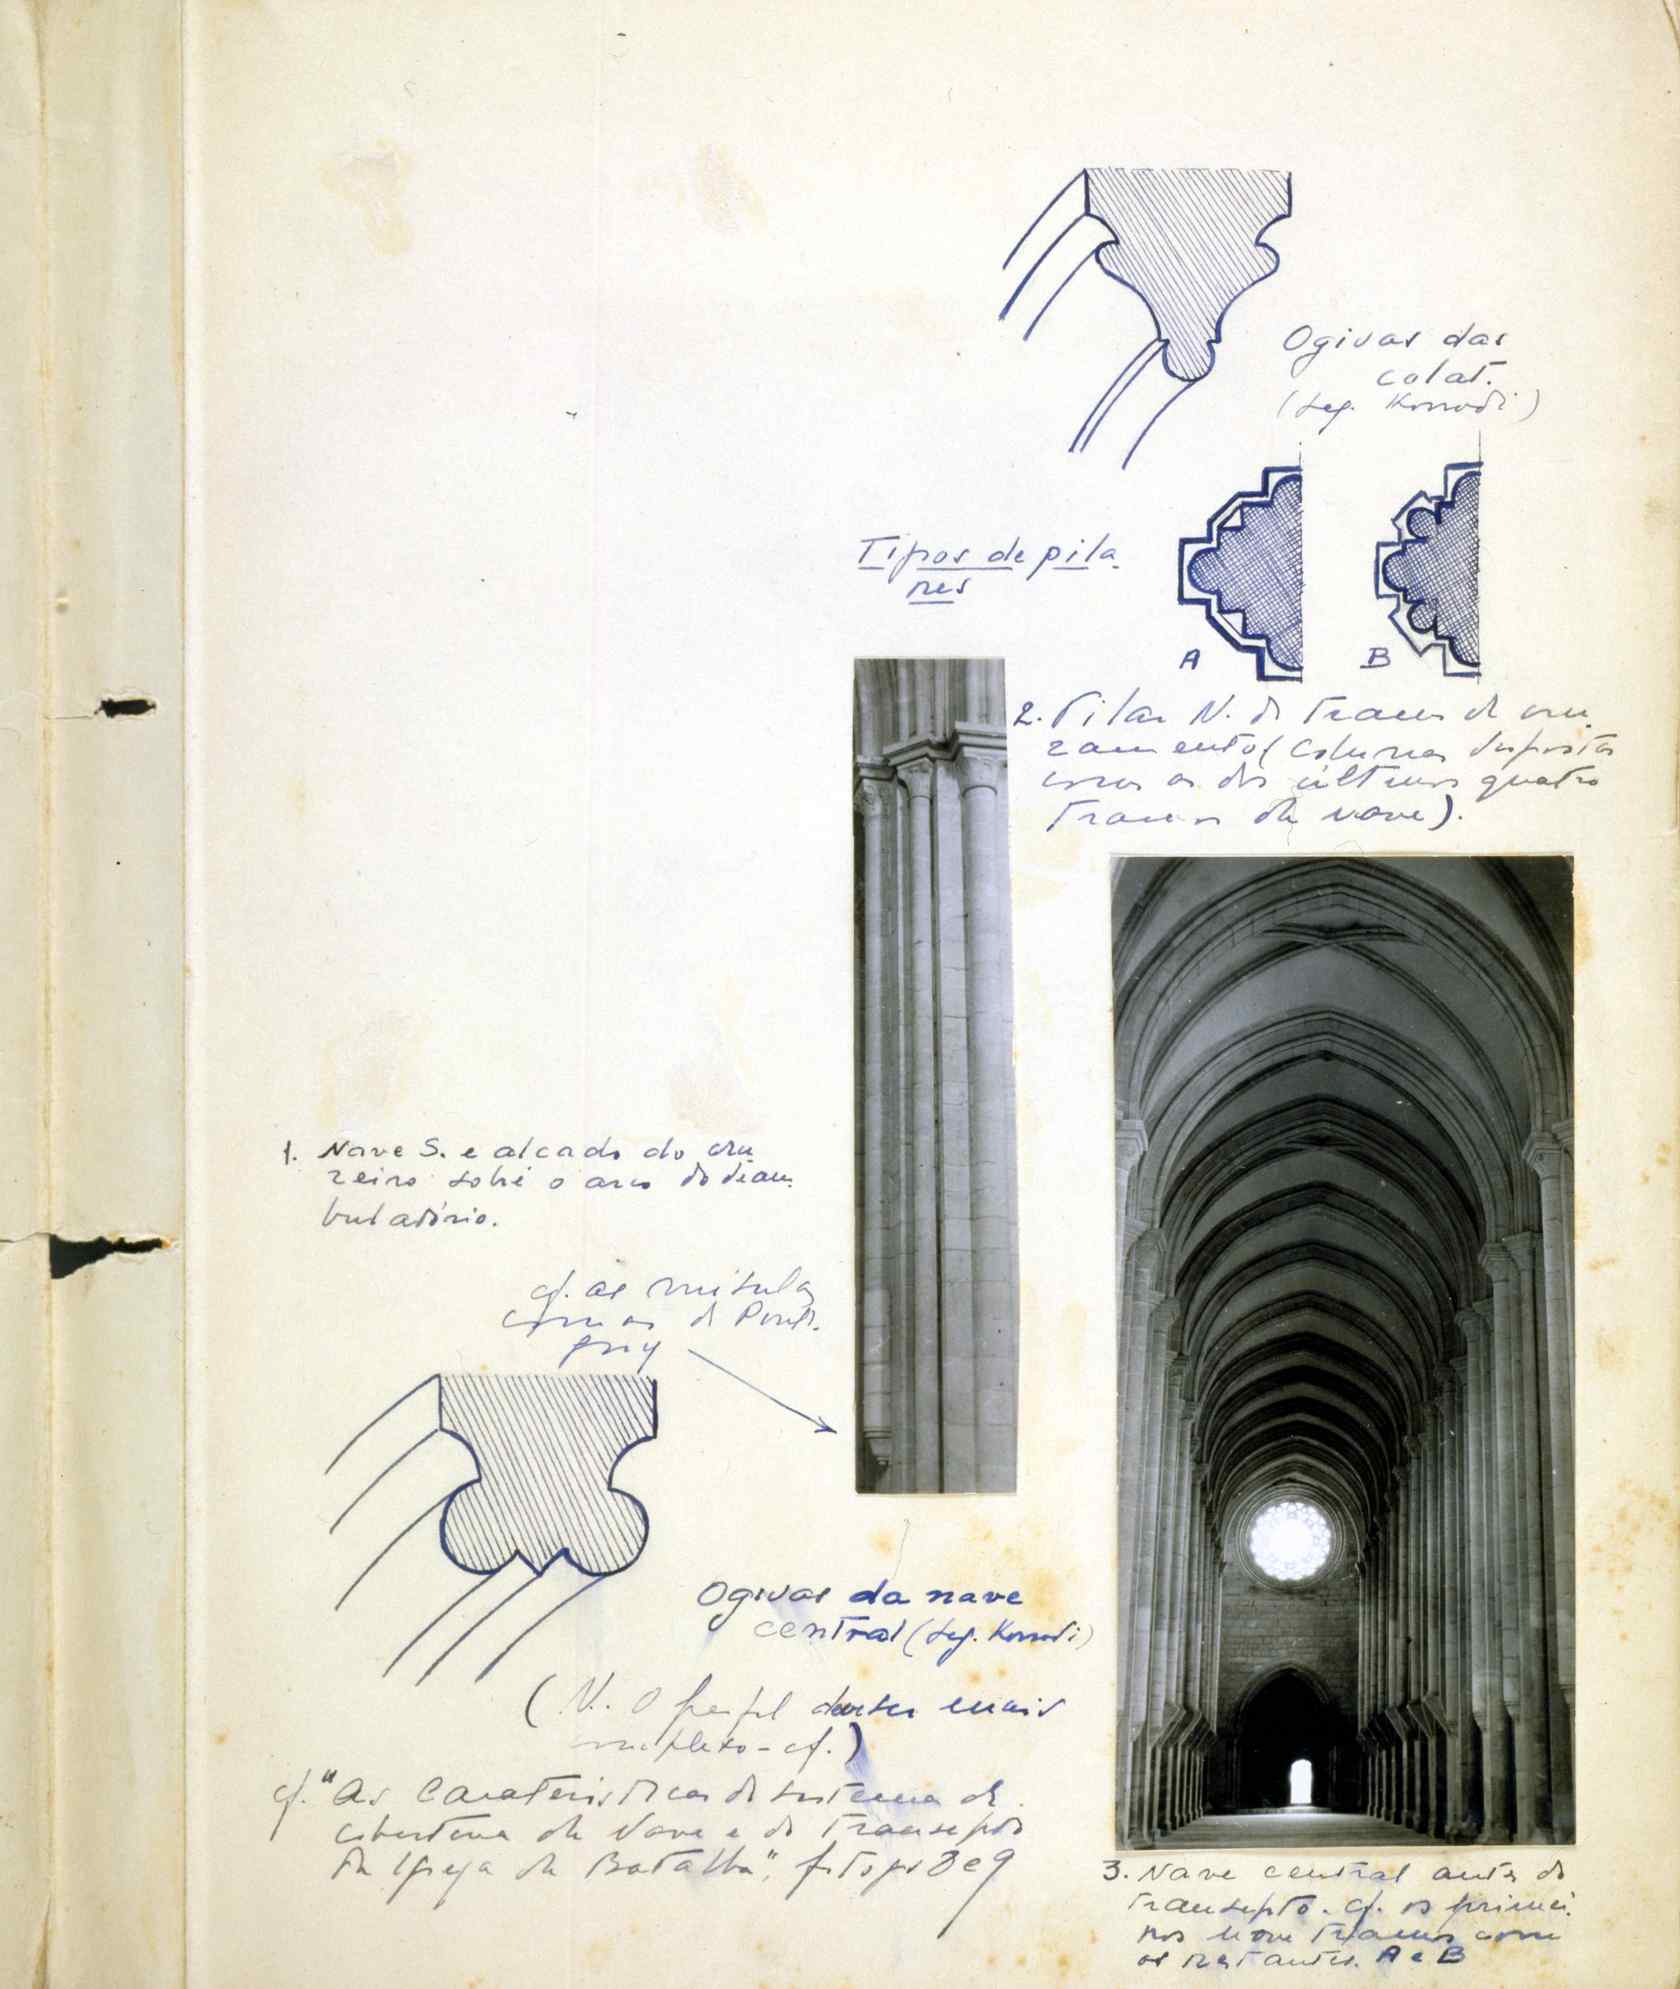 Ogivas das
colat.
(seg. Korrodi)
Tipos de pila-
res
A
B
2. Pilar N. do tramo do cru-
zamento (colunas dispostas
como as dos últimos quatro
tramos da nave).
1. Nave S. e alçado do cru-
zeiro sobre o arco do deam-
bulatório.
cf. as misulas
com as de Ponti-
gny
Ogivas da nave
central (seg. Korrodi)
(N. O perfil deve ser mais
complexo - cf.)
cf. "As Caracteristicas do sistema de
cobertura da Nave e do Transepto
da Igreja da Batalha", 8 e 9
3. Nave central antes do
transepto. cf. os primei-
ros nove tramos com
os restantes. A e B